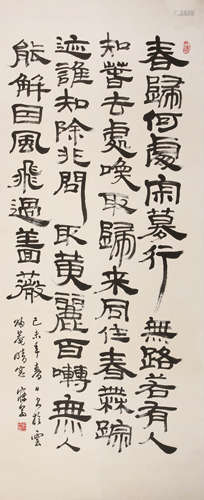 春歸何處寂寞行無路若有人
知春去處喚取歸來同住春無蹤
迹誰知除非問取黃麗百囀無人
能解因風飛過薔薇
己未年春日書於雲
晴窗